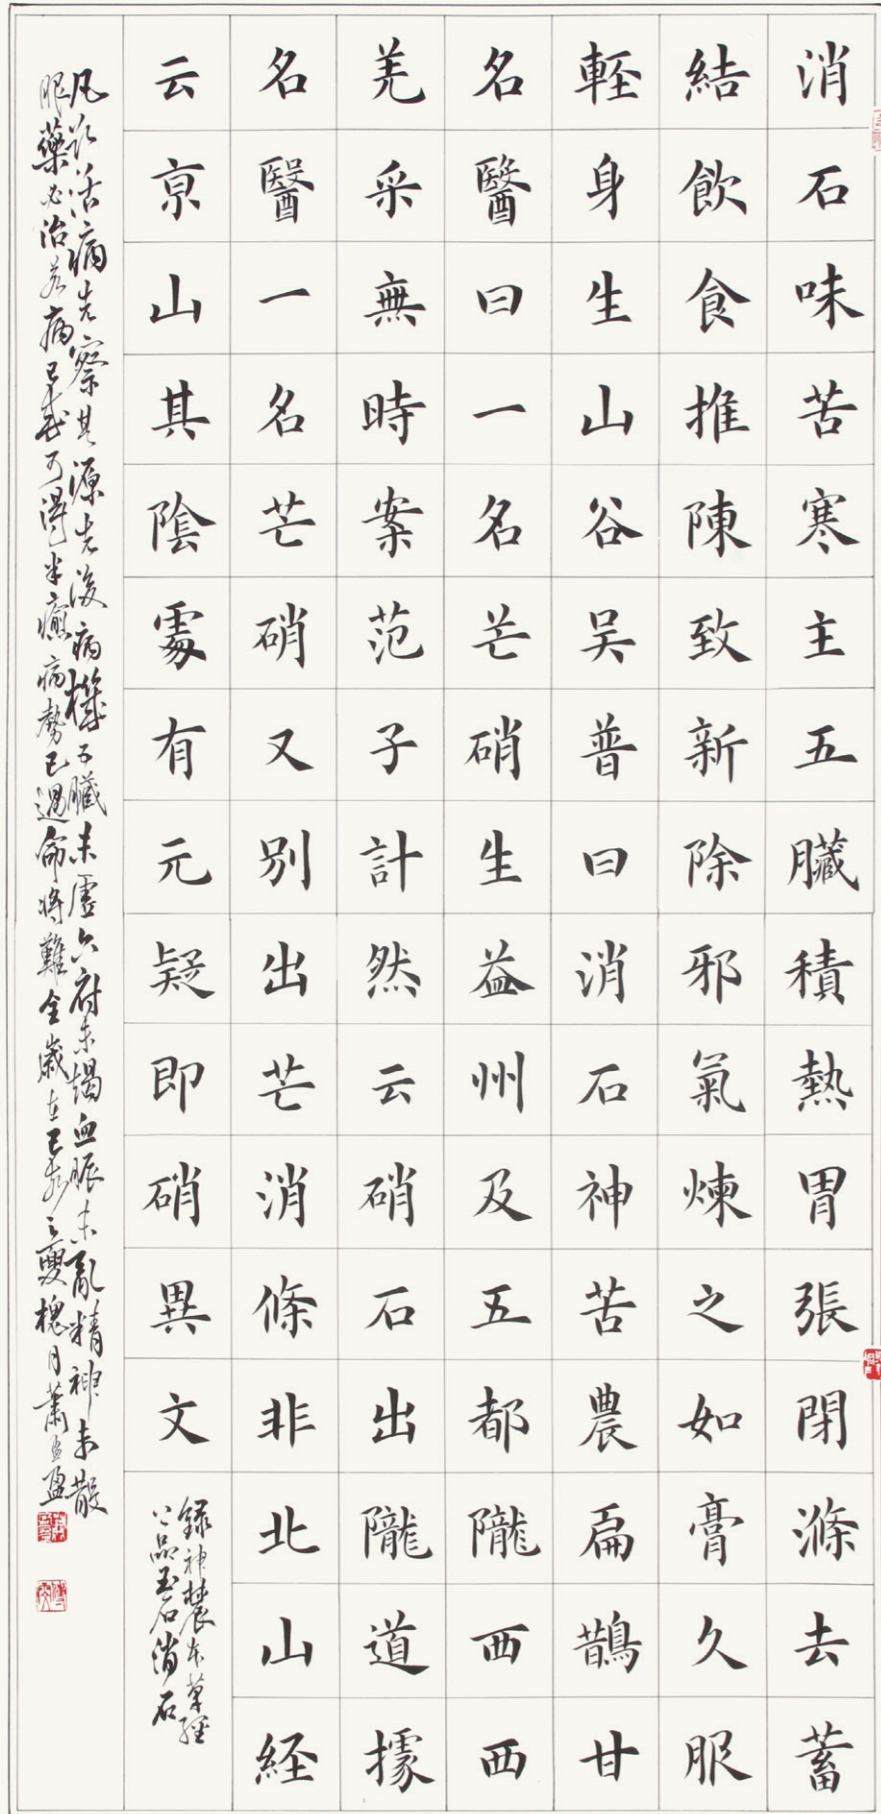 消石味苦寒主五臟積熱胃張閉滌去蓄
結飲食推陳致新除邪氣煉之如膏久服
輕身生山谷吴普曰消石神苦農扁鵲甘
名醫曰一名芒硝生益州及五都隴西西
羌采無時案范子計然云硝石出隴道據
名醫一名芒硝又別出芒消條非北山経
云京山其陰處有元疑即硝異文
録神農本草經
上品玉石消石
凡欲治病先察其源先後病機五臟未虛六府未竭血脈未亂精神未散
服藥必治若病已成可得半癒病勢已過命將難全歲在己亥之夔槐月蕭